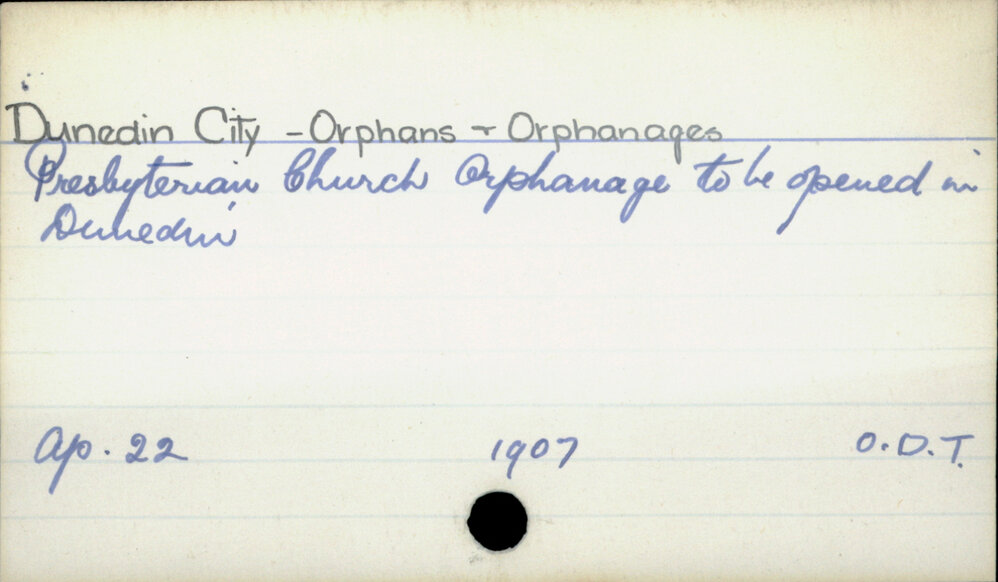 Dunedin City - Orphans & Orphanages
Presbyterian Church Orphanage to be opened in
Dunedin
Ap. 22 1907 O.D.T.